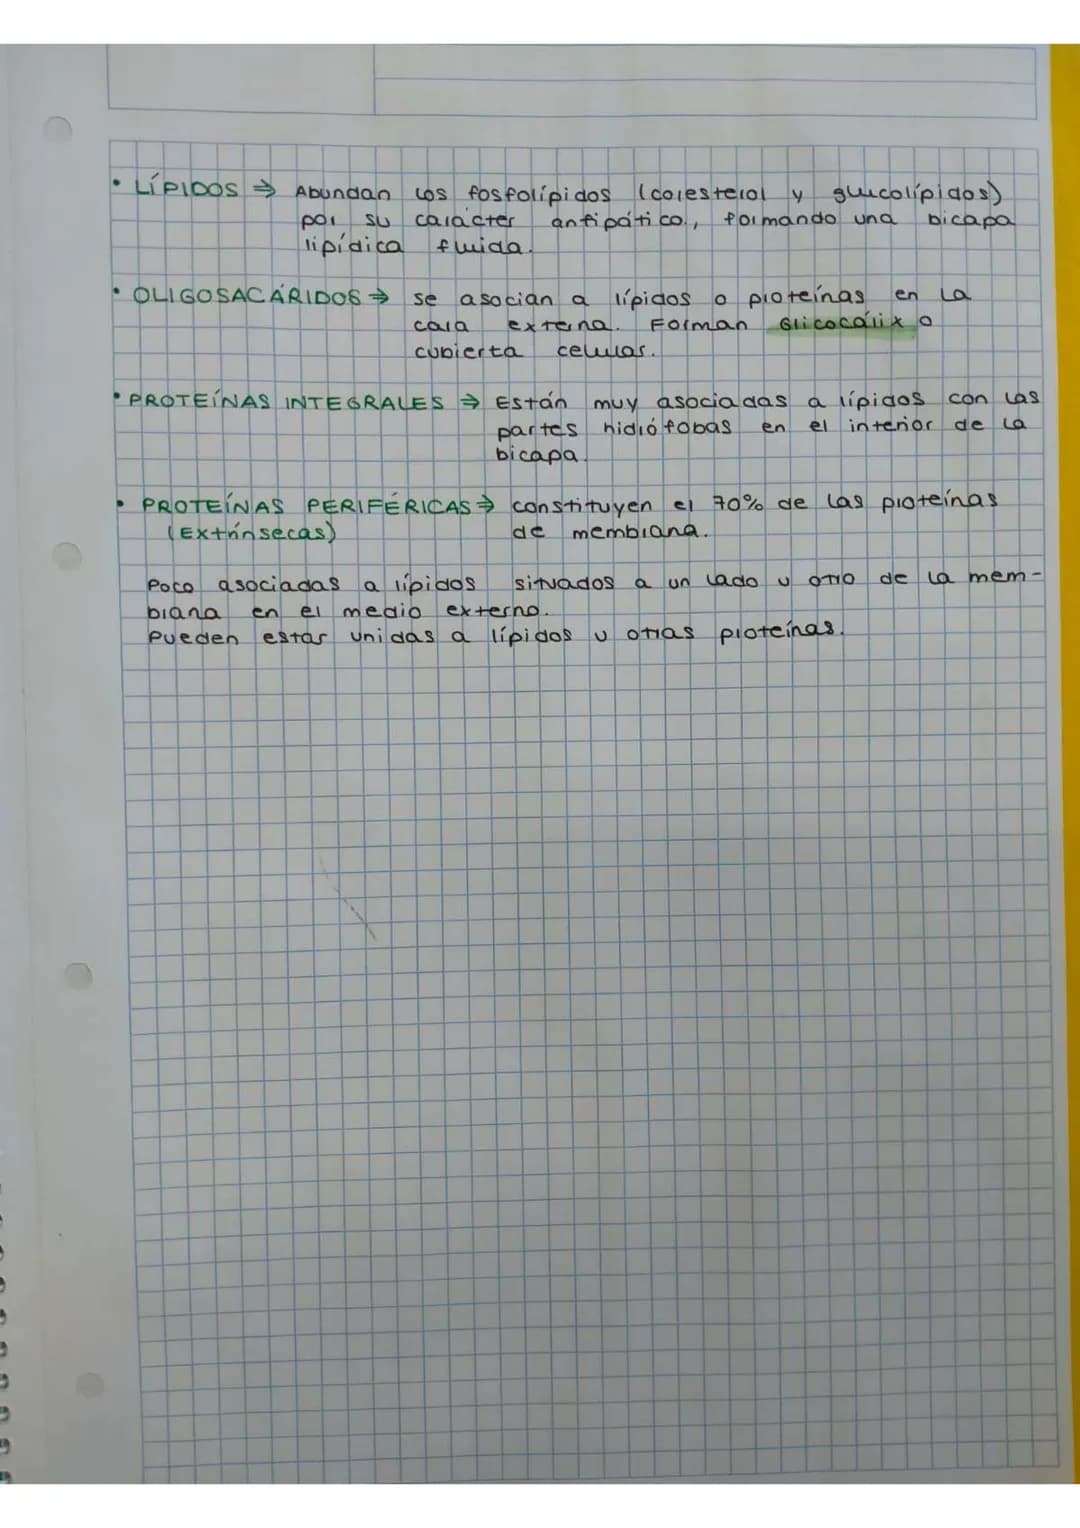 • LÍPIDOS ⇒ Abundan los fosfolípidos (colesterol y glucolípidos)
por su carácter anfipático, formando una bicapa
lipídica fluida.
• OLIGOSACÁRIDOS ⇒ se asocian a lípidos o proteínas en la
cara externa. Forman Glicocálix o
cubierta celular.
• PROTEÍNAS INTEGRALES ⇒ Están muy asociadas a lípidos con las
partes hidrófobas en el interior de la
bicapa.
• PROTEÍNAS PERIFÉRICAS ⇒ constituyen el 70% de las proteínas
(Extrínsecas) de membrana.
Poco asociadas a lípidos situados a un lado u otro de la mem-
brana en el medio externo.
Pueden estar unidas a lípidos u otras proteínas.